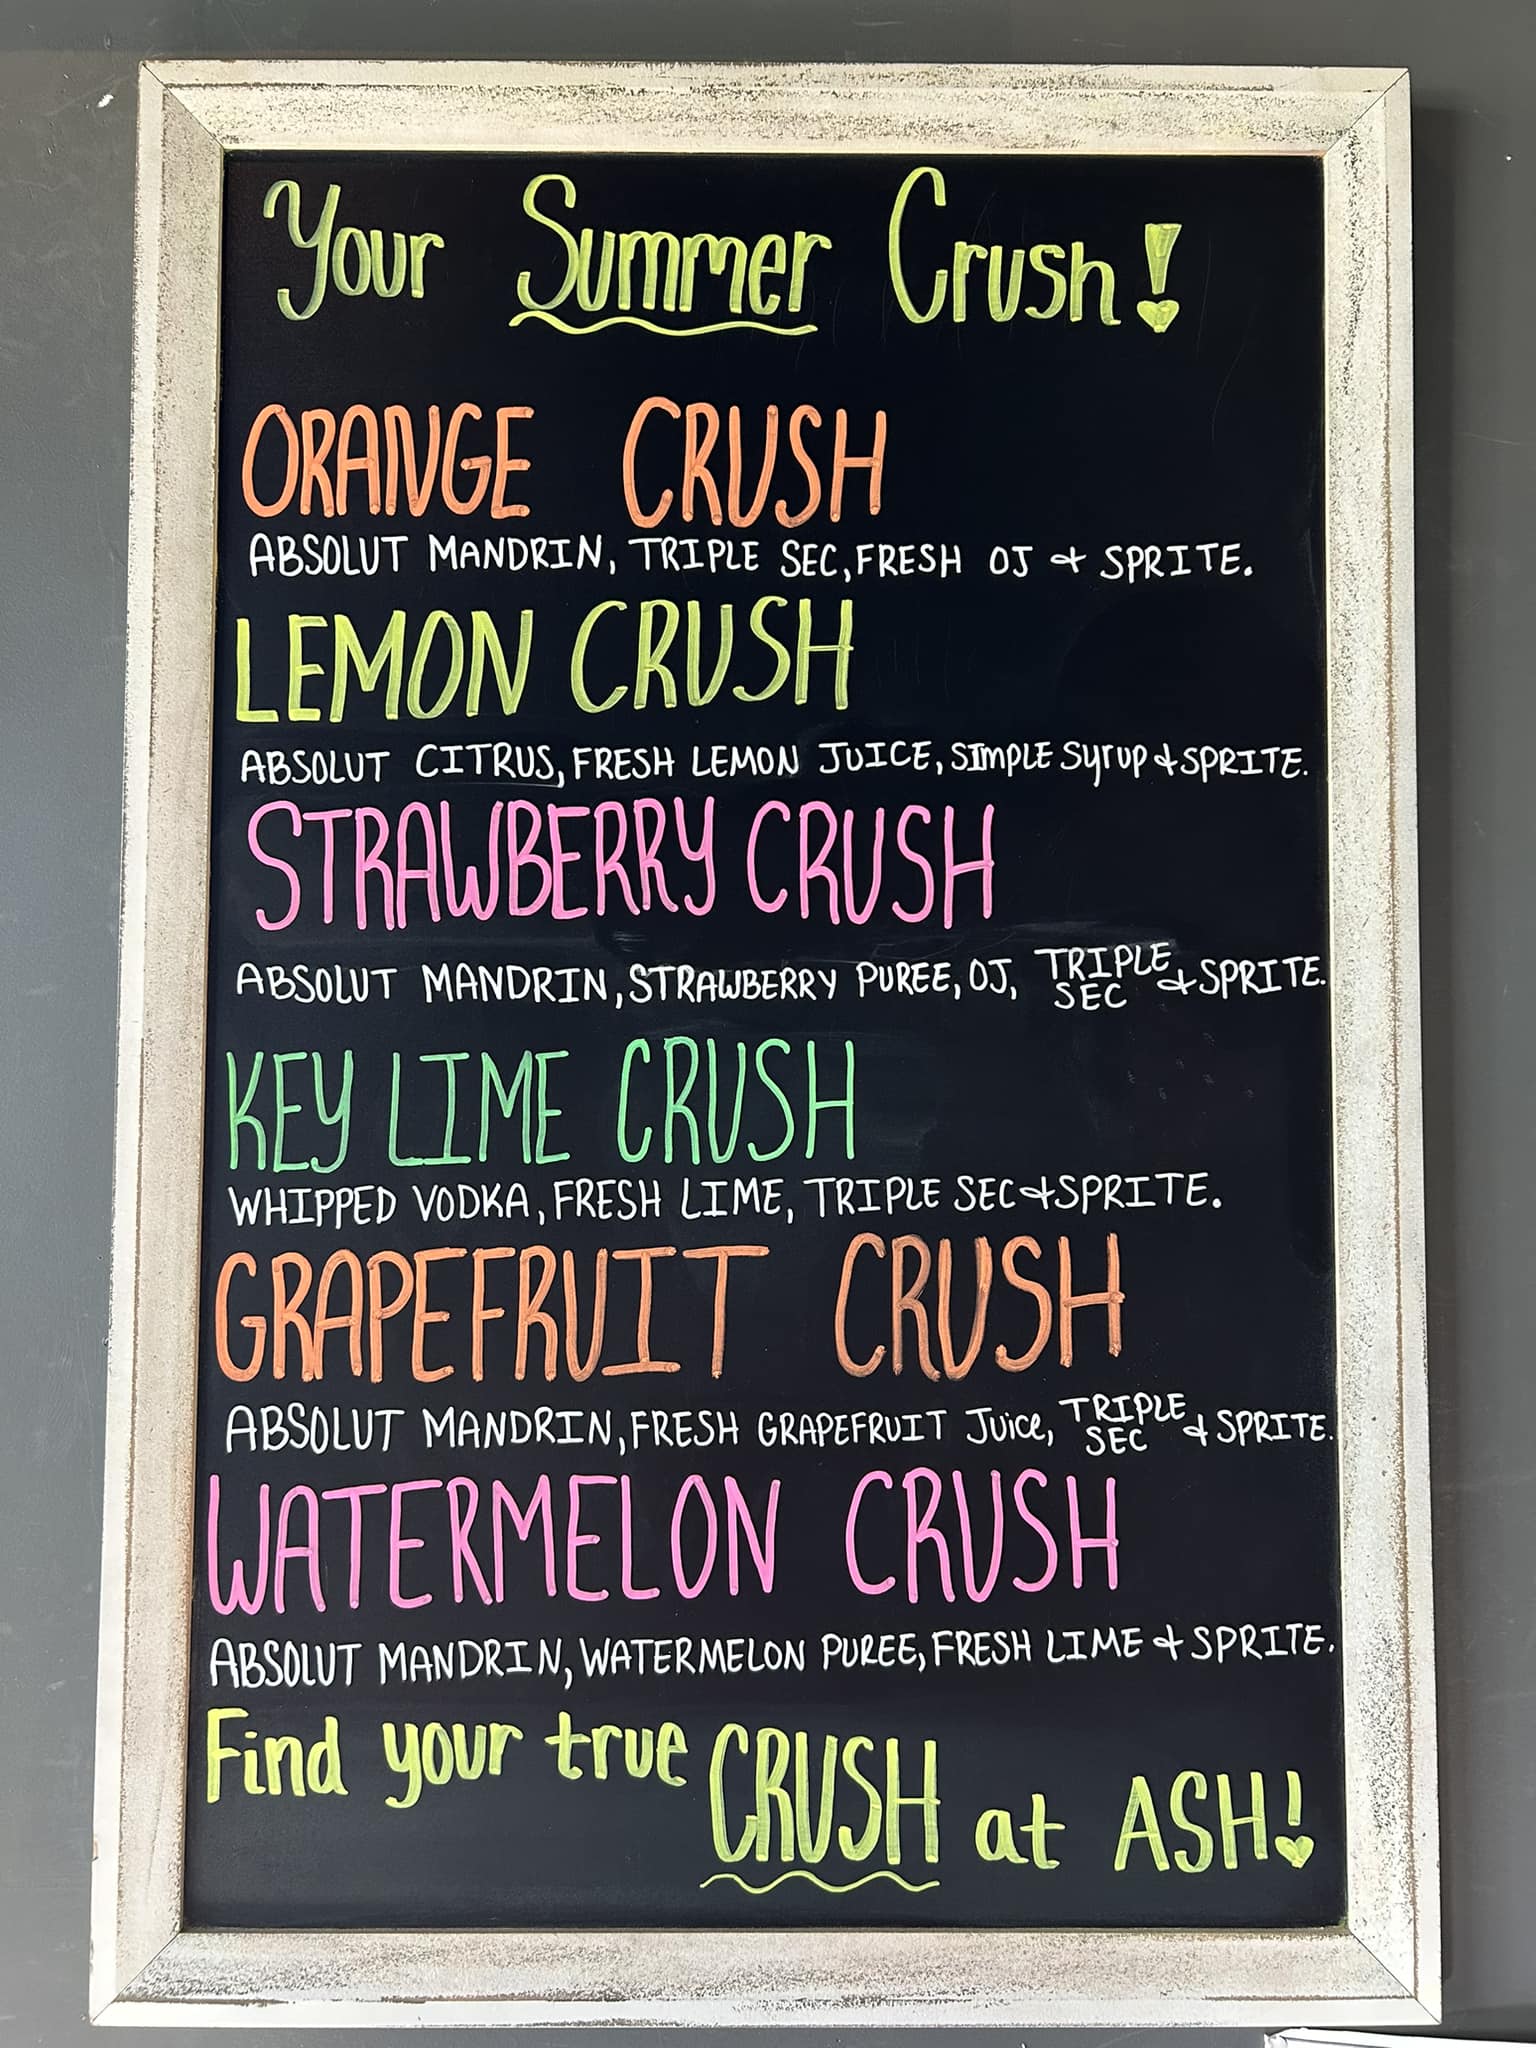 Your Summer Crush!
ORANGE CRUSH
ABSOLUT MANDRIN, TRIPLE SEC, FRESH OJ & SPRITE.
LEMON CRUSH
ABSOLUT CITRUS, FRESH LEMON JUICE, SIMPLE Syrup & SPRITE.
STRAWBERRY CRUSH
ABSOLUT MANDRIN, STRAWBERRY PUREE, OJ, TRIPLE SEC & SPRITE.
KEY LIME CRUSH
WHIPPED VODKA, FRESH LIME, TRIPLE SEC & SPRITE.
GRAPEFRUIT CRUSH
ABSOLUT MANDRIN, FRESH GRAPEFRUIT Juice, TRIPLE SEC & SPRITE.
WATERMELON CRUSH
ABSOLUT MANDRIN, WATERMELON PUREE, FRESH LIME & SPRITE.
Find your true CRUSH at ASH!